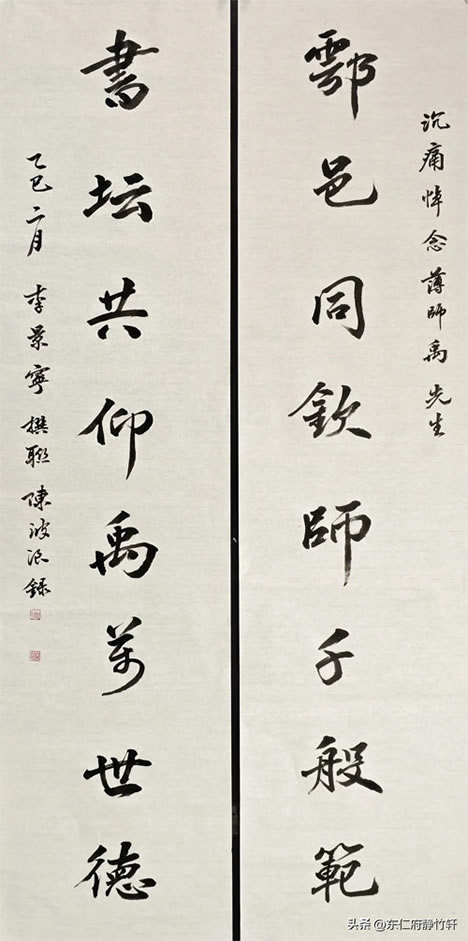 沉痛悼念薄師禹先生
鄠邑同欽師千般範
書坛共仰禹萬世德
乙巳二月 李景寧撰聯 陳波浪錄
头条 @东仁府静竹轩